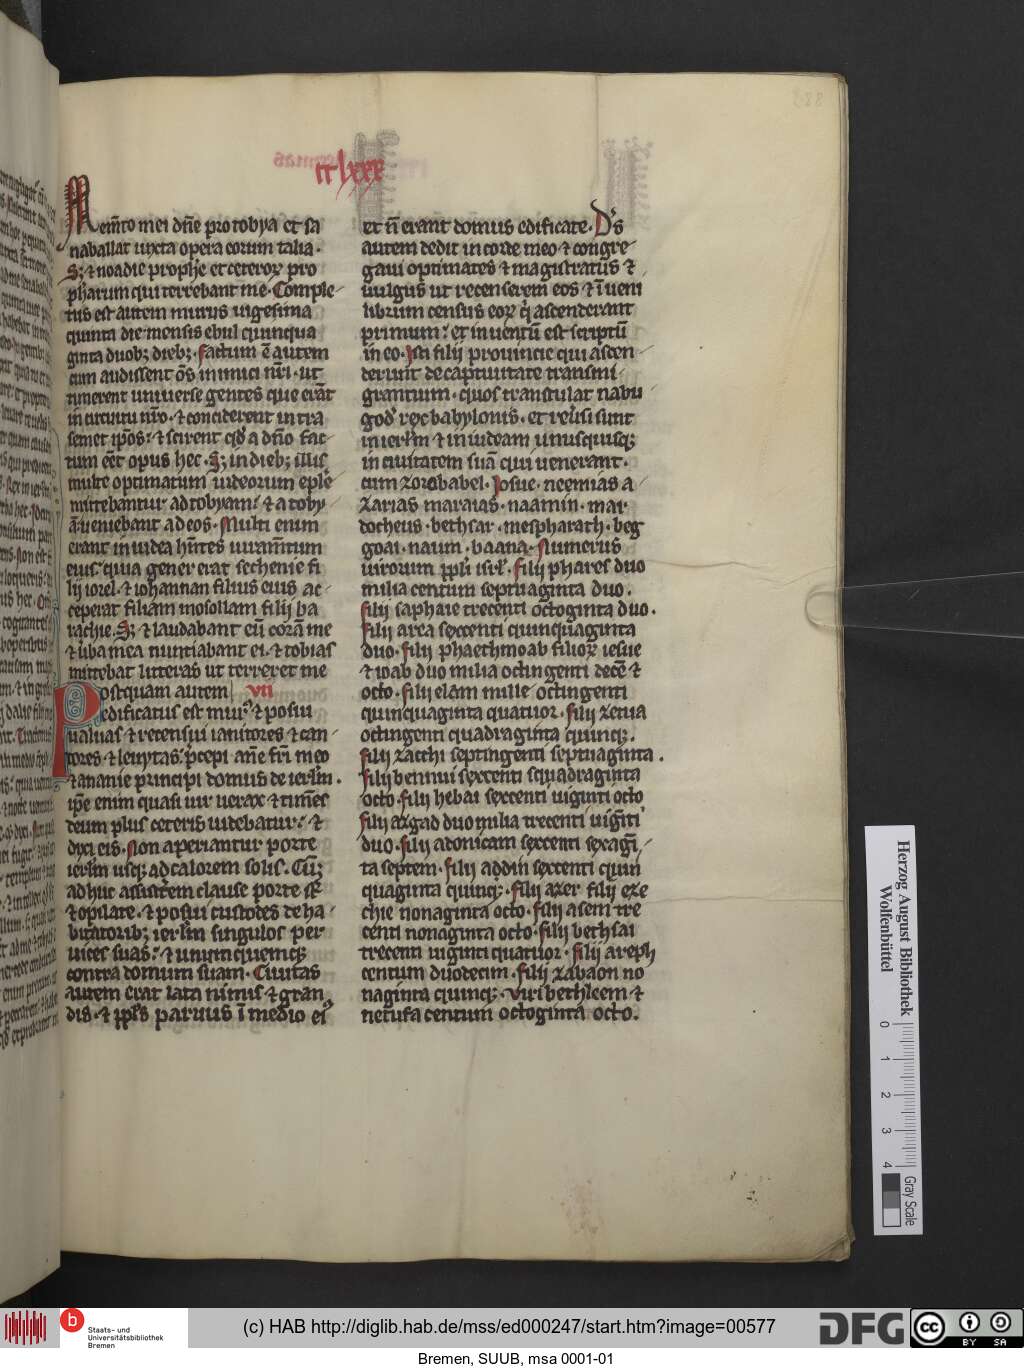 cclxxx
Mem̄to mei dn̄e pro tobya et sa
naballat iuxta opera eorum talia·
S; ⁊ noadie prophe et ceteroꝝ pro
pharum qui terrebant me· Comple
tus est autem murus uigesima
quinta die mensis ebul quinqua
ginta duob; dieb;· factum ē autem
cum audissent om̄s inimici nr̄i· ut
timerent uniuerse gentes que erāt
in circuitu nr̄o· ⁊ conciderent intra
semet ip̄os· ⁊ scirent qd̓ a dn̄o fac
tum eēt opus hec· S; in dieb; illis
multe optimatum iudeorum eple
mittebantur ad tobyam· ⁊ a toby
a ueniebant ad eos· Multi enim
erant in iudea hn̄tes iuram̄tum
eius· quia gener erat sechenie fi
lij iorel· ⁊ iohannan filius eius ac
ceperat filiam mosollam filij ba
rachie· S; ⁊ laudabant eū corā me
⁊ ūba mea nuntiabant ei· ⁊ tobias
mittebat litteras ut terreret me
Postquam autem VII
edificatus est mur̾ ⁊ posui
ualuas ⁊ recensui ianitores ⁊ can
tores· ⁊ leuytas· p̄cepi ane fr̄i meo
⁊ ananie principi domus de ierlm̄·
ip̄e enim quasi uir uerax ⁊ tim̄es
deum plus ceteris uidebatur· ⁊
dixi eis· Non aperiantur porte
ierlm̄ usq; ad calorem solis· Cū;
adhuc assisterem clause porte st̄
⁊ opilate· ⁊ posui custodes de ha
bitatorib; ierlm̄ singulos per
uices suas· ⁊ unumquemq;
contra domum suam· Ciuitas
autem erat lata nimis ⁊ gran
dis· ⁊ ppl̄s paruus ī medio ei̾
et n̄ erant domus edificate· D̄s
autem dedit in corde meo ⁊ congre
gaui optimates ⁊ magistratus ⁊
uulgus ut recenserem eos ⁊ īueni
librum census eoꝝ q̄ ascenderant
primum· et inuentū est scriptū
in eo· Isti filij prouincie qui ascen
derunt de captiuitate transmi
grantium· quos transtulat nabu
god̓ rex babylonis· et reūsi sunt
in ierlm̄ ⁊ in iudeam unusquisq;
in ciuitatem suā qui uenerant·
cum zorobabel· Iosue· neemias a
zarias maraias· naamin· mar
docheus· bethsar· mespharath· beg
goai· naum· baana· Numerus
uirorum ppl̄i isrl̄· filij phares duo
milia centum septuaginta duo·
filij saphaie trecenti octoginta duo·
filij area sexcenti quinquaginta
duo· filij phaethmoab filioꝝ iesue
⁊ ioab duo milia octingenti decē ⁊
octo· filij elam mille octingenti
quinquaginta quatuor· filij zetua
octingenti quadraginta quinq;·
filij zacchi septingenti septuaginta·
filij bennui sexcenti squadraginta
octo· filij hebai sexcenti uiginti octo
filij azgad duo milia trecenti uigīti
duo· filij adonicam sexcenti sexagī
ta septem· filij addin sexcenti quin
quaginta quinq;· filij azer filij eze
chie nonaginta octo· filij asem tre
centi nonaginta octo· filij bethsai
trecenti uiginti quatuor· filij areph
centum duodecim· filij zabaon no
naginta quinq;· Viri bethleem ⁊
netufa centum octoginta octo·
Herzog August Bibliothek
Wolfenbüttel
0 1 2 3 4
Gray Scale
b Staats- und
Universitätsbibliothek
Bremen
(c) HAB http://diglib.hab.de/mss/ed000247/start.htm?image=00577
DFG
cc BY SA
Bremen, SUUB, msa 0001-01